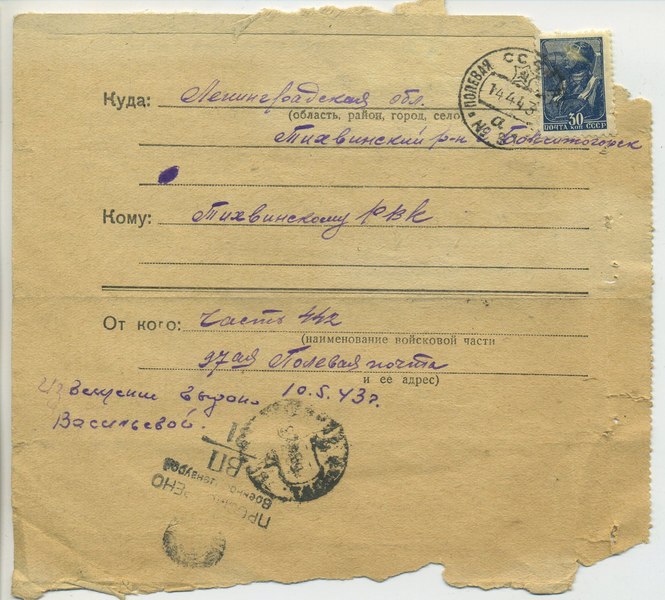 Куда: Ленинградская обл.
(область, район, город, село
Тихвинский р-н Бокситогорск
Кому: Тихвинскому РВК
От кого: часть 442
(наименование войсковой части
97ая Полевая почта
и ее адрес)
Извещение выдано 10.5.43г.
Васильевой.
ПОЛЕВАЯ СССР
14.4.43
а
30
ПОЧТА КОП СССР
21
ВП
Военной цензурой